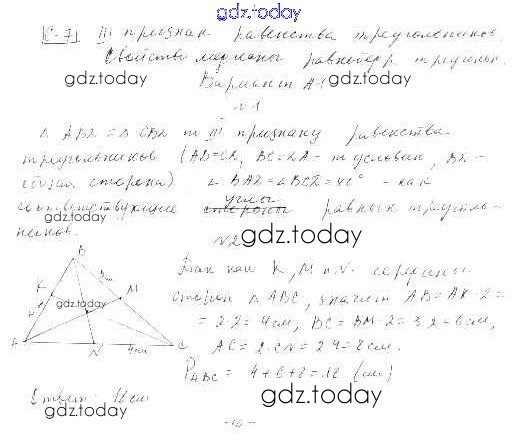 gdz.today
С-7 III признак равенства треугольников.
Свойства медианы равнобедр треугольн.
gdz.today gdz.today
Вариант А1
N 1
Δ ABD = Δ CBD по III признаку равенства
треугольников (AB=CD, BC=DA - по условию, BD -
gdz.today gdz.today
общая сторона) = 40° - как
углы
соответствующие стороны равных треуголь-
ников.
gdz.today
N 2
gdz.today
B
Так как K, M и N середины
K 3см M
сторон Δ ABC, значит AB = AK · 2 =
gdz.today
= 2·2 = 4 см, BC = BM · 2 = 3·2 = 6 см,
A N 4см C
AC = 2·CN = 2·4 = 8 см.
P ABC = 4 + 6 + 8 = 18 (см)
Ответ: 18 см
gdz.today
gdz.today